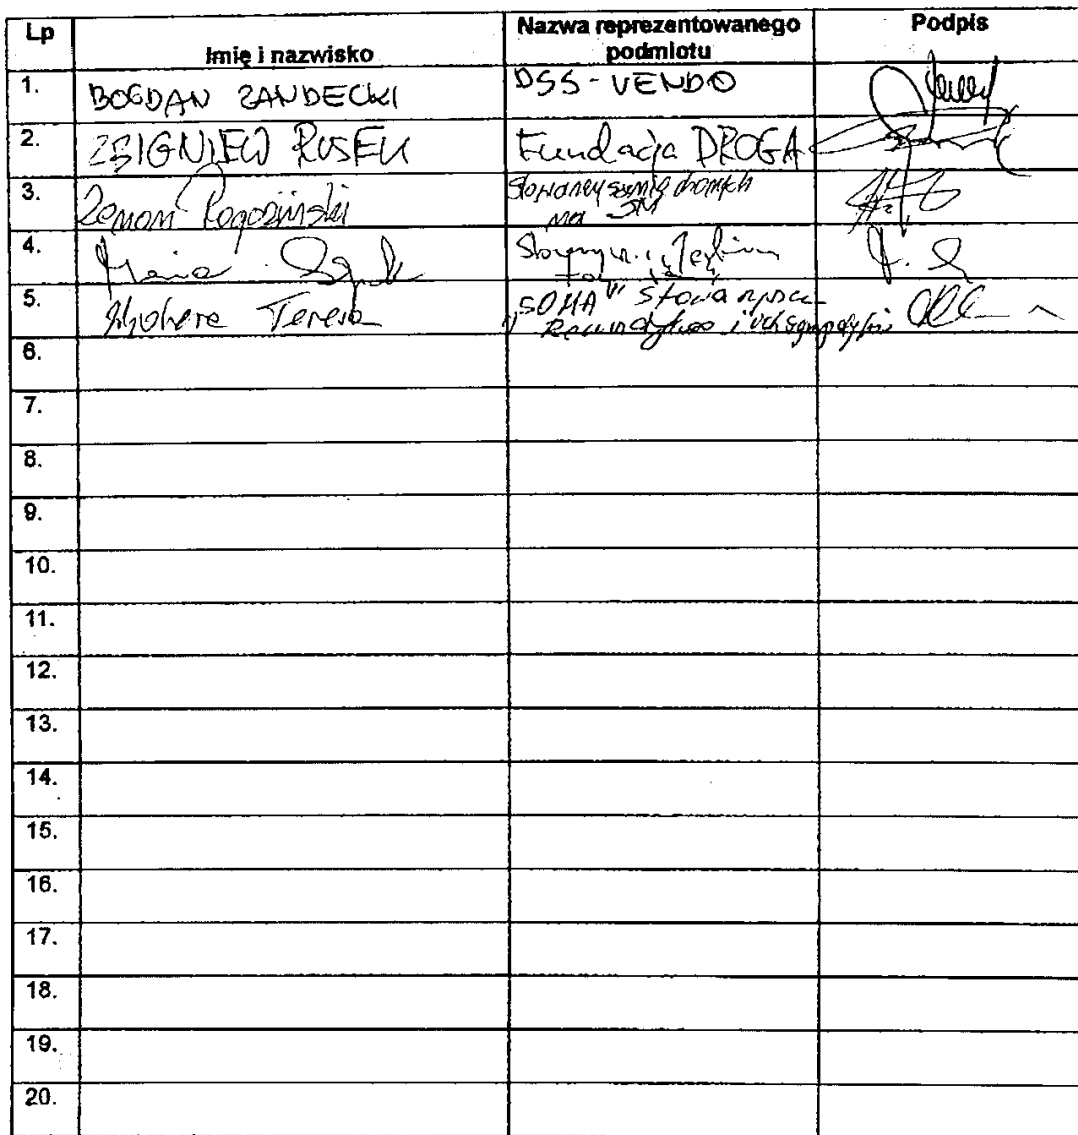 Lp
Imię i nazwisko
Nazwa reprezentowanego
podmiotu
Podpis
1. BOGDAN ZANDECKI DSS - VENDO
2. ZBIGNIEW RUSEK Fundacja DROGA
3. Zenon Rogoziński chorych
na SM
4. Maria
5. Teresa "SOMA"
i ich sympatyków
6.
7.
8.
9.
10.
11.
12.
13.
14.
15.
16.
17.
18.
19.
20.